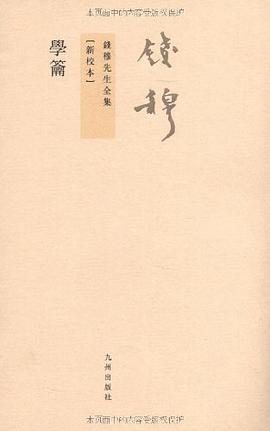 本页面中的内容受版权保护
錢穆
錢穆先生全集
［新校本］
學籥
九州出版社
本页面中的内容受版权保护